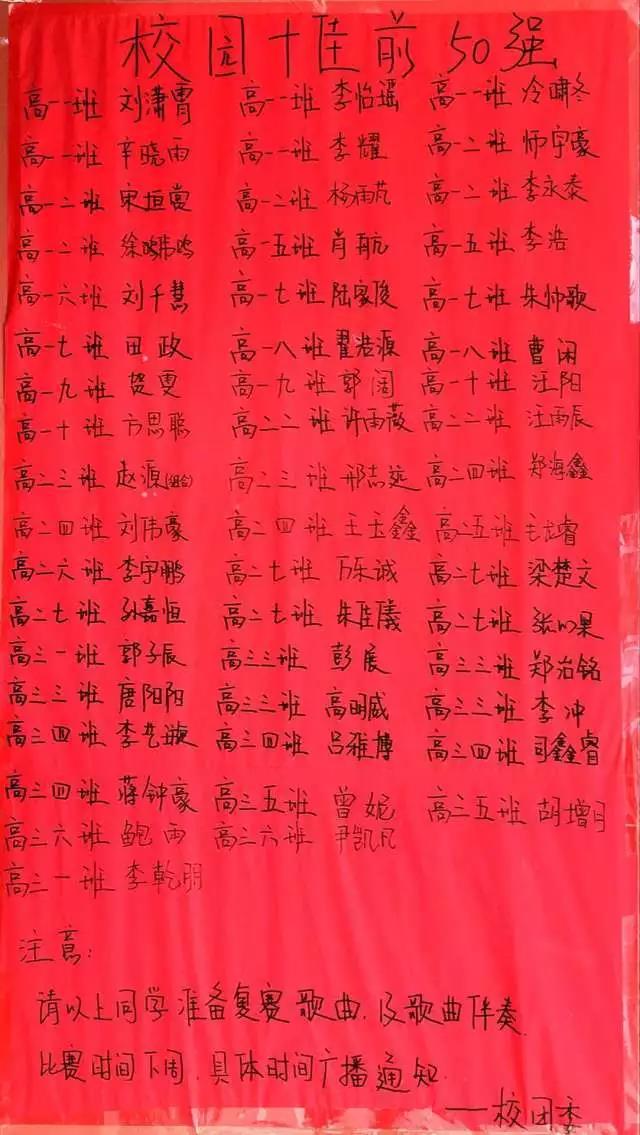 校园十佳前50强
高一一班 刘潇霄 高一一班 李怡瑶 高一一班 冷啸冬
高一一班 辛晓雨 高一一班 李耀 高一二班 师宇豪
高一二班 宋垣 高一二班 杨雨芃 高一二班 李永泰
高一二班 徐 高一五班 肖航 高一五班 李浩
高一六班 刘千慧 高一七班 陆家俊 高一七班 朱帅歌
高一七班 田政 高一八班 翟浩源 高一八班 曹闲
高一九班 贺雯 高一九班 郭阔 高一十班 汪阳
高一十班 方思聪 高二二班 许雨薇 高二二班 汪雨辰
高二三班 赵源(组合) 高二三班 邢志 高二四班 郑海鑫
高二四班 刘伟豪 高二四班 王玉鑫 高二五班 毛龙睿
高二六班 李宇鹏 高二七班 万乐诚 高二七班 梁楚文
高二七班 孙嘉恒 高二七班 朱佳仪 高二七班 张 果
高三一班 郭子辰 高三三班 彭展 高三三班 郑治铭
高三三班 唐阳阳 高三三班 高明威 高三三班 李冲
高三四班 李艺璇 高三四班 吕雅博 高三四班 司鑫睿
高三四班 蒋钟豪 高三五班 曾妮 高三五班 胡增月
高三六班 鲍雨 高三六班 尹凯凡
高三一班 李乾明
注意:
请以上同学准备复赛歌曲,及歌曲伴奏.
比赛时间下周,具体时间广播通知.
——校团委